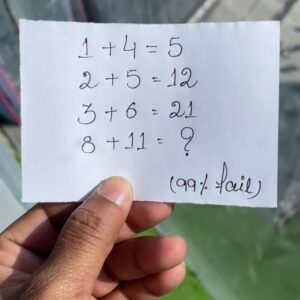 1 + 4 = 5
2 + 5 = 12
3 + 6 = 21
8 + 11 = ?
(99% fail)